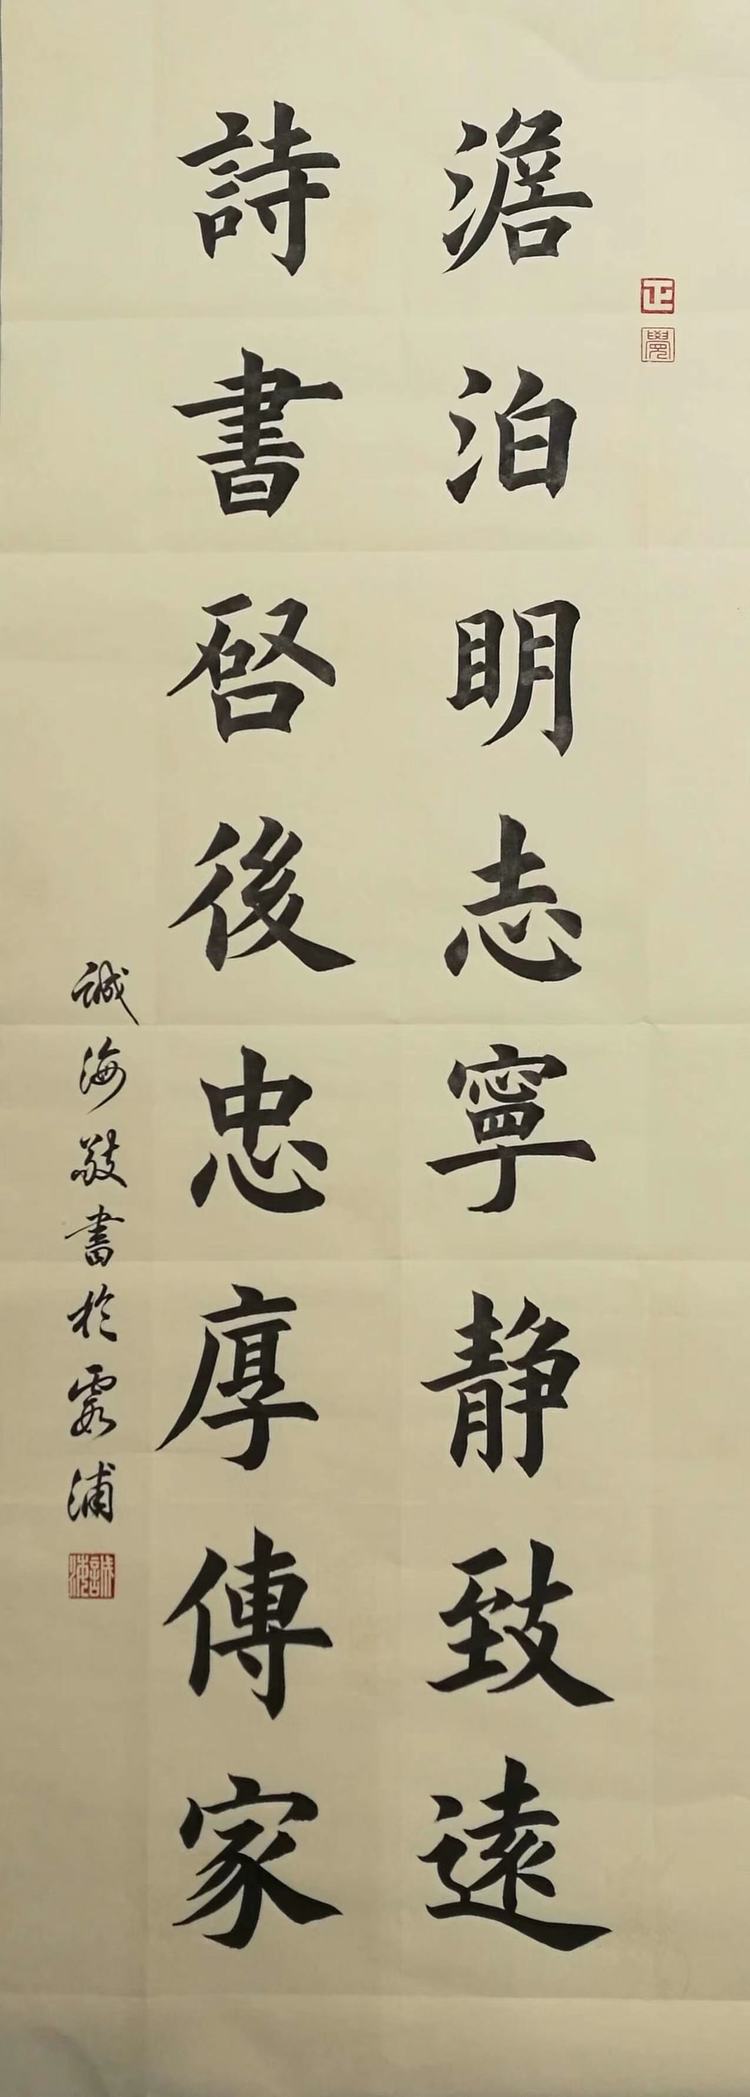 澹泊明志寧靜致遠
詩書啓後忠厚傳家
誠海敬書於霞浦
正
覺
誠海